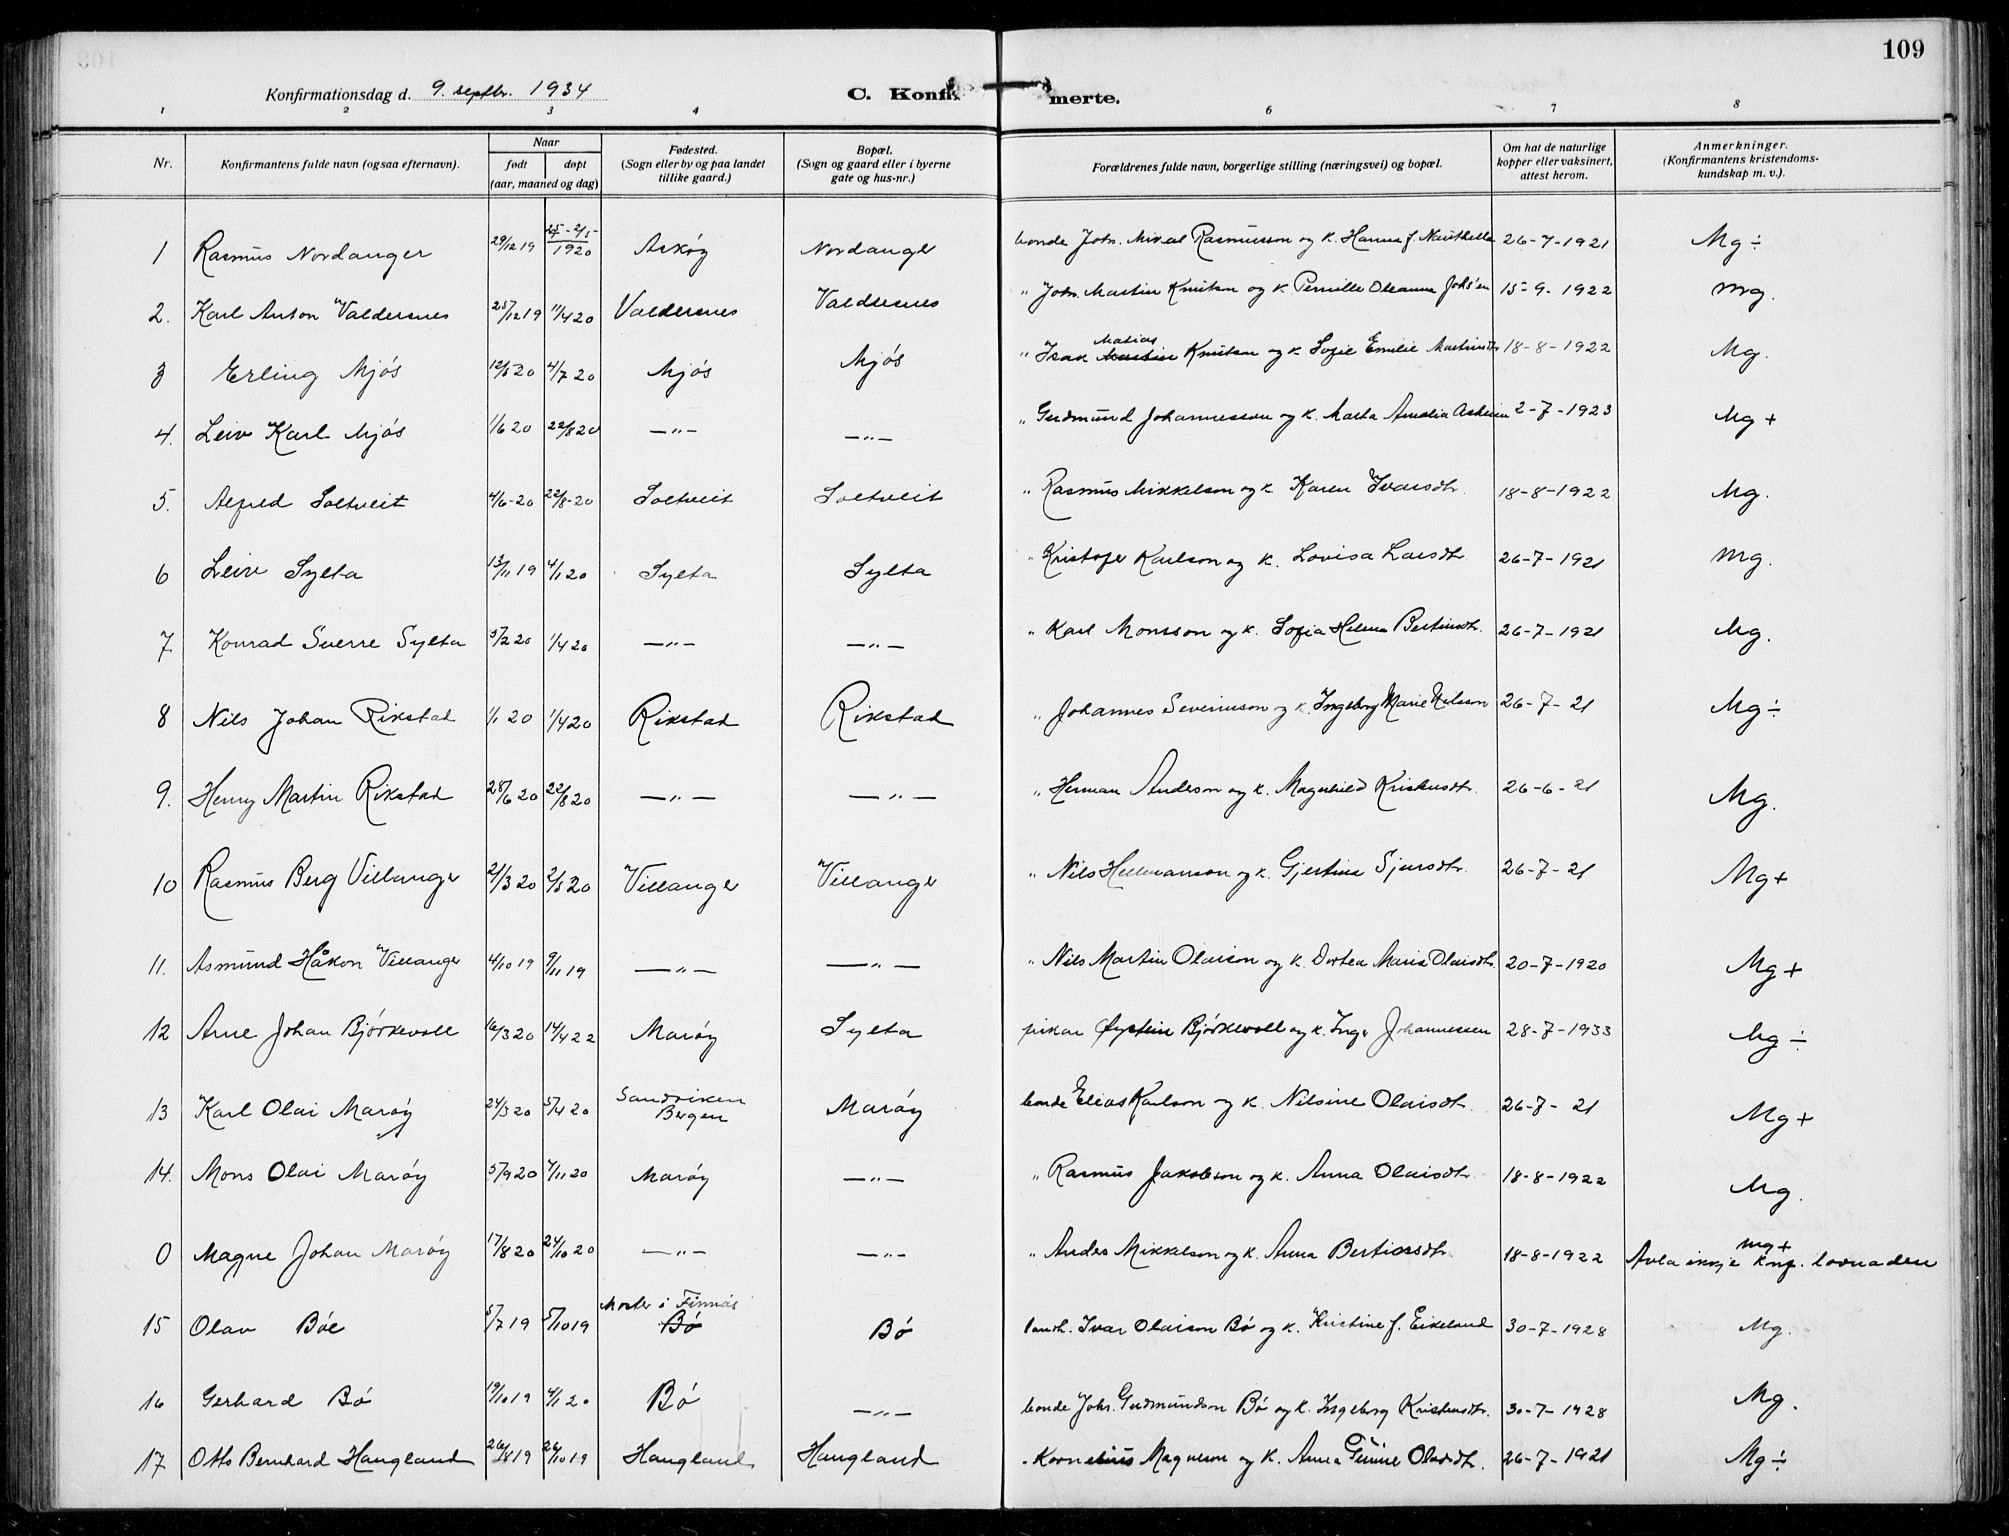 109
Konfirmationsdag d. 9. septbr. 1934
C. Konfir merte.
1 2 3 4 5 6 7 8
Nr.
Konfirmantens fulde navn (ogsaa efternavn).
Naar
født døpt
(aar, maaned og dag)
Fødested.
(Sogn eller by og paa landet
tillike gaard.)
Bopæl.
(Sogn og gaard eller i byerne
gate og hus-nr.)
Forældrenes fulde navn, borgerlige stilling (næringsvei) og bopæl.
Om hat de naturlige
kopper eller vaksinert,
attest herom.
Anmerkninger.
(Konfirmantens kristendoms-
kundskap m. v.).
1 Rasmus Nordanger 29/12 19 25-2/5-1920 Askøy Nordanger bonde Johs. Mikal Rasmusson og k. Hanna f. 26-7-1921 Mg ÷
2. Karl Anton Valdersnes 25/12 19 11/4 20 Valdersnes Valdersnes " Johs. Martin Knutsen og k. Pernille Oleanna Johs'en 15-9-1922 Mg.
3 Erling Mjøs 12/5 20 4/7 20 Mjøs Mjøs " Isak Matias Knutsen og k. Sofie Emilie Martinsdtr 18-8-1922 Mg.
4. Leiv Karl Mjøs 1/6 20 22/8 20 —"— —"— " Gudmund Johannesson og k. Marta Amalia 2-7-1923 Mg +
5. Alfred Soltveit 4/6-20 22/8-20 Soltveit Soltveit " Rasmus Mikkelson og k. Karen Ivarsdtr. 18-8-1922 Mg.
6 Leiv Sylta 13/11 19 4/1 20 Sylta Sylta " Kristofer Karlson og k. Lovisa Larsdtr. 26-7-1921 Mg.
7 Konrad Sverre Sylta 5/2 20 1/4 20 —"— —"— " Karl Monsson og k. Sofia Helena Bertinsdtr. 26-7-1921 Mg.
8 Nils Johan Rikstad 1/1 20 1/4 20 Rikstad Rikstad " Johannes Severinson og k. Ingeborg Marie Nilsson 26-7-21 Mg ÷
9. Henry Martin Rikstad 28/6 20 22/8 20 —"— —"— " Herman Anderson og k. Magnhild Kristensdtr. 26-6-21 Mg.
10 Rasmus Berg Villanger 21/3 20 2/5 20 Villanger Villanger " Nils Hermanson og k. Gjertina Sjursdtr. 26-7-21 Mg +
11. Asmund Håkon Villanger 4/10 19 9/11 19 —"— —"— " Nils Martin Olaison og k. Dortea Maria Olaisdtr. 20-7-1920 Mg +
12 Arne Johan Bjørkevoll 16/3 20 14/4 22 Marøy Sylta fiskar Øystein Bjørkevoll og k. Inga Johannessen 28-7-1933 Mg ÷
13 Karl Olai Marøy 24/3 20 5/4 20 Sandviken Bergen Marøy bonde Elias Karlson og k. Nilsine Olaisdtr. 26-7-21 Mg +
14. Mons Olai Marøy 5/9 20 7/11 20 Marøy —"— " Rasmus Jakobson og k. Anna Olaisdtr. 18-8-1922 Mg.
0 Magne Johan Marøy 17/8 20 24/10 20 —"— —"— " Anders Mikkelson og k. Anna Bertiasdtr. 18-8-1922 Mg + Avla ikkje Knf. lovnaden
15 Olav Bøe 5/7 19 5/10 19 Moster i Finnås Bø Bø landh. Ivar Olaison Bø og k. Kristine f. Eikeland 30-7-1928 Mg.
16 Gerhard Bø 19/10 19 4/1 20 Bø —"— bonde Johs. Gudmundson Bø og k. Ingeborg Kristensdtr. 30-7-1928 Mg.
17 Otto Bernhard Haugland 26/8 19 26/10 19 Haugland Haugland " Kornelius Magneson og k. Anna Olavsdtr. 26-7-1921 Mg ÷